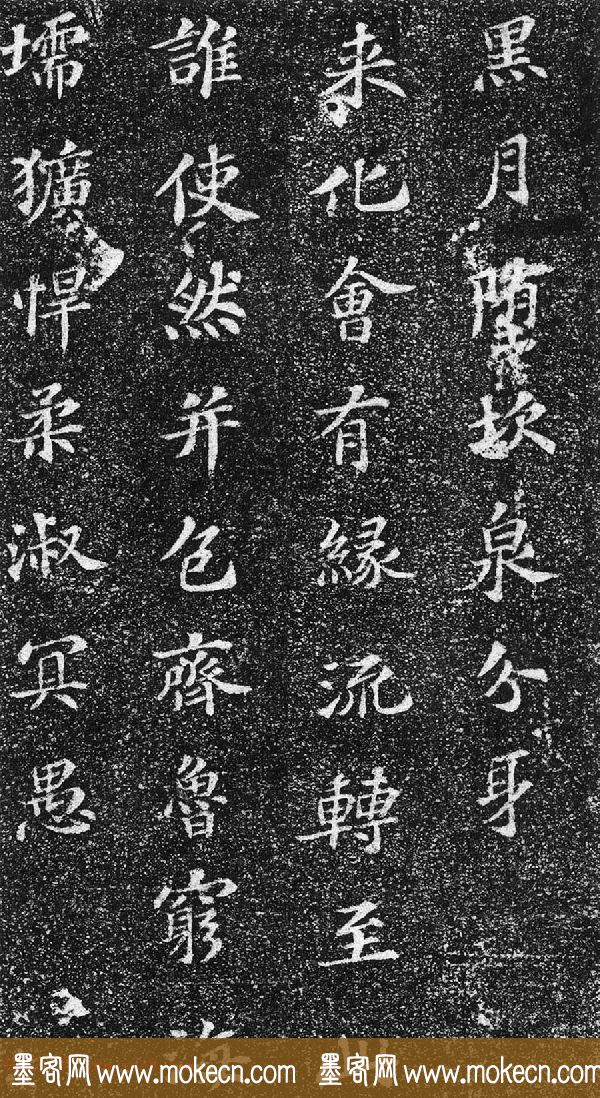 黑月墮坎泉分身
来化會有緣流轉至
誰使然并包齊魯窮
壖獷悍柔淑冥愚
墨客网 www.mokecn.com 墨客网 www.mokecn.com